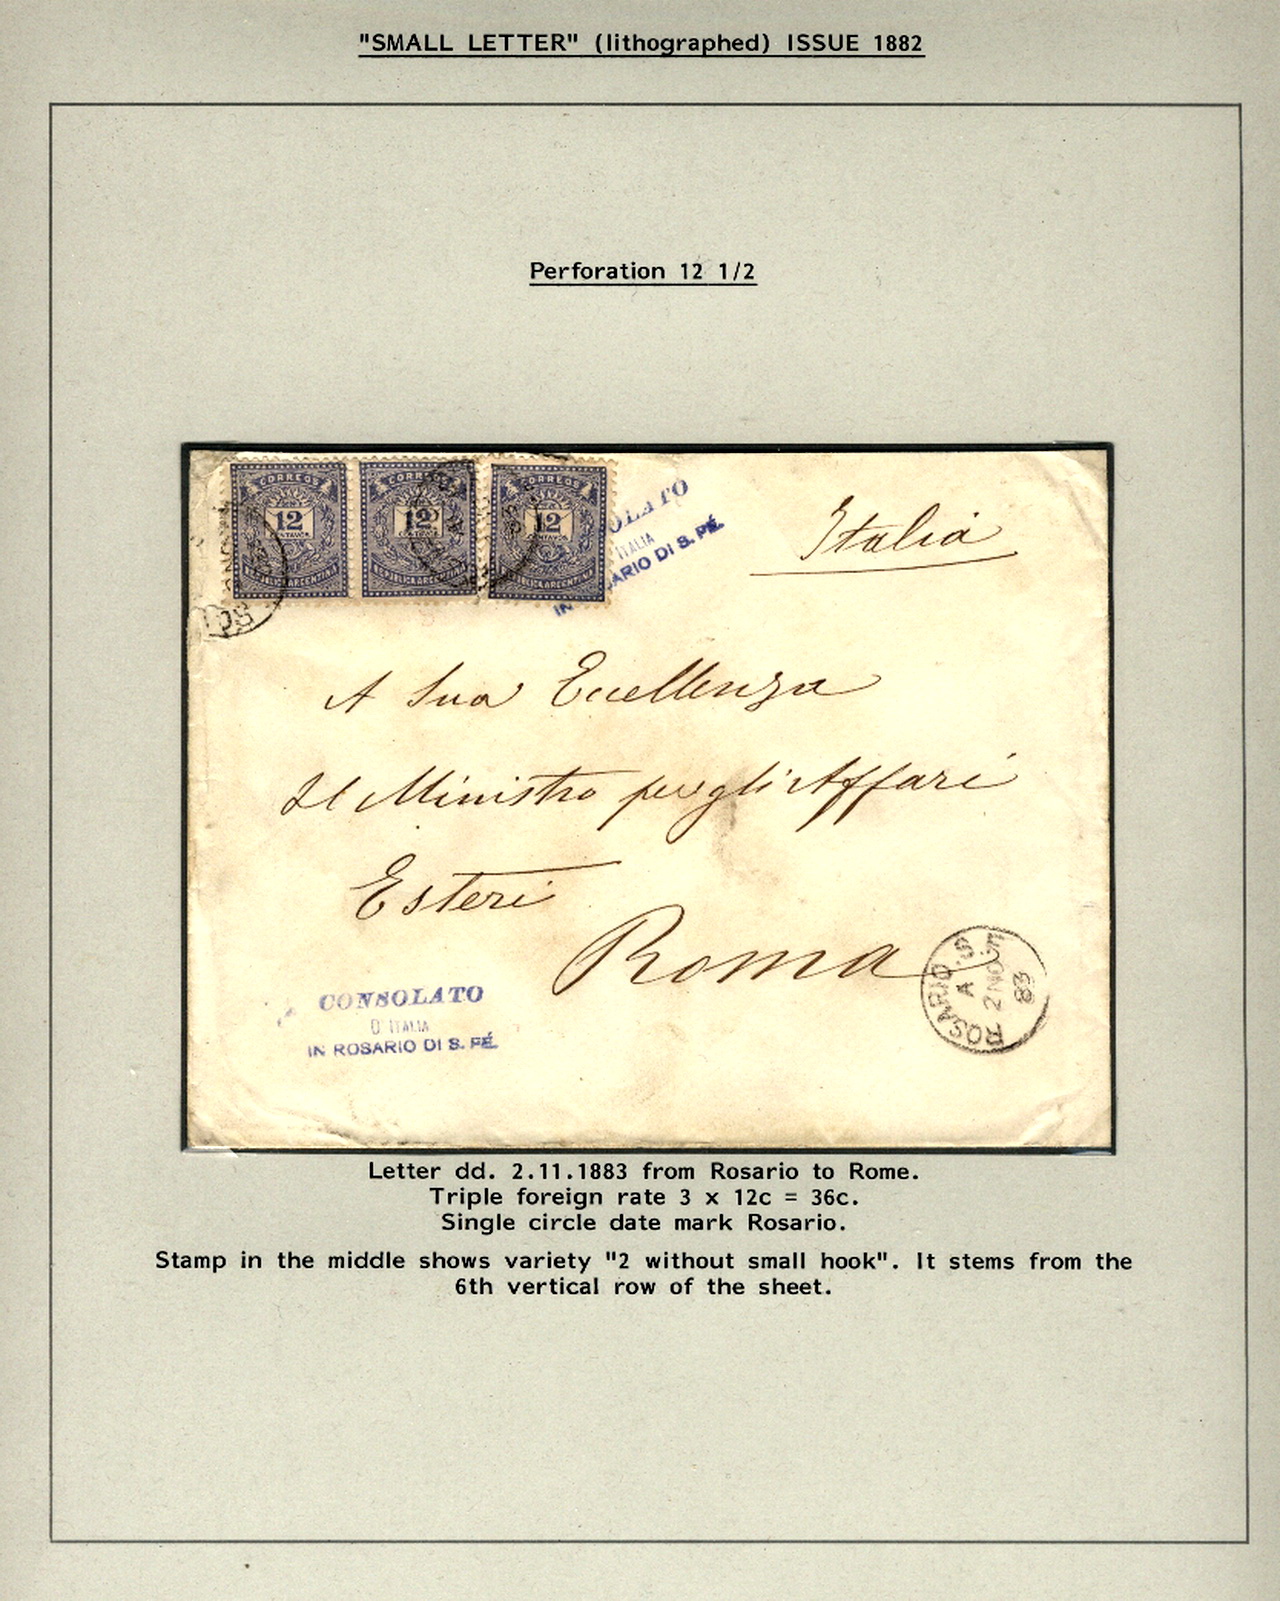 "SMALL LETTER" (lithographed) ISSUE 1882
Perforation 12 1/2
CORREOS
12
CENTAVOS
REPUBLICA ARGENTINA
CORREOS
12
CENTAVOS
REPUBLICA ARGENTINA
CORREOS
12
CENTAVOS
REPUBLICA ARGENTINA
OLATO
ITALIA
IN ARIO DI S. FÉ.
Italia
A Sua Eccellenza
Il Ministro per gli Affari
Esteri
Roma
CONSOLATO
D'ITALIA
IN ROSARIO DI S. FÉ.
ROSARIO S. F.
A
2 NO
83
Letter dd. 2.11.1883 from Rosario to Rome.
Triple foreign rate 3 x 12c = 36c.
Single circle date mark Rosario.
Stamp in the middle shows variety "2 without small hook". It stems from the
6th vertical row of the sheet.